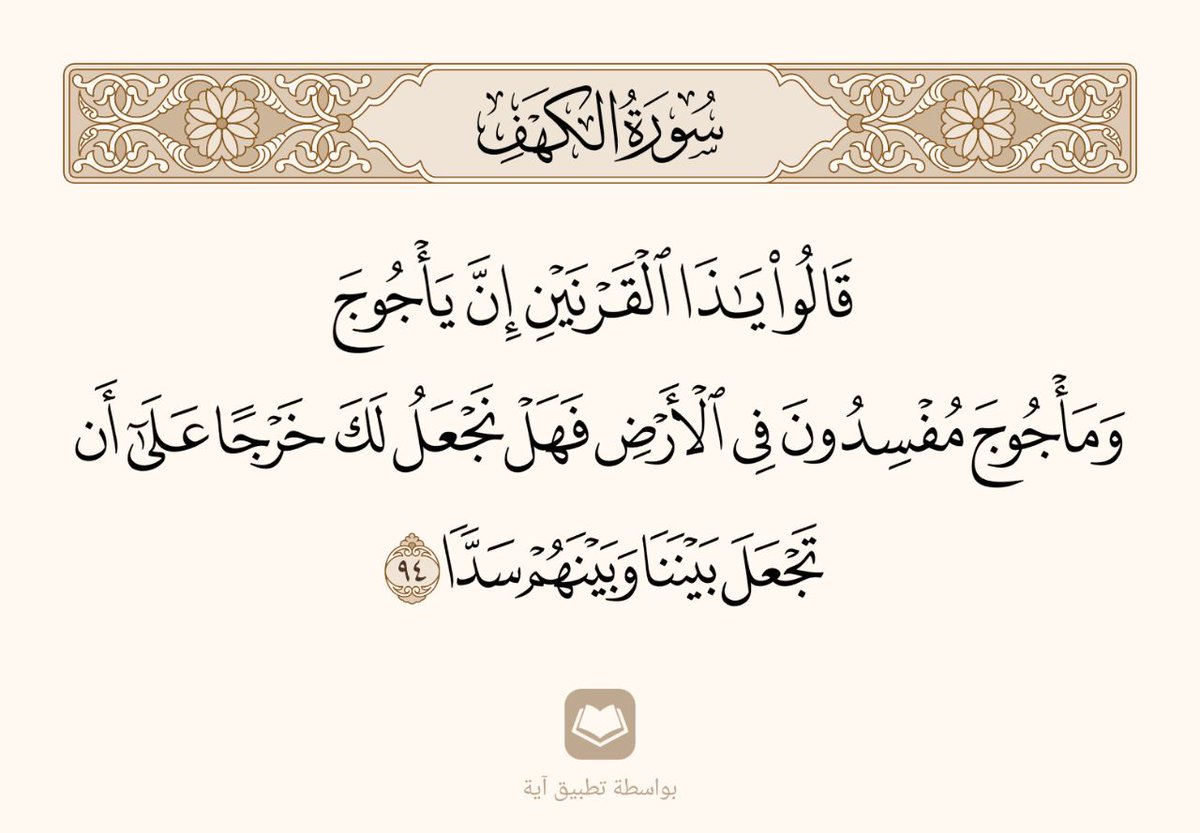 سُورَةُ الكَهۡفِ
قَالُواْ يَٰذَا ٱلۡقَرۡنَيۡنِ إِنَّ يَأۡجُوجَ
وَمَأۡجُوجَ مُفۡسِدُونَ فِي ٱلۡأَرۡضِ فَهَلۡ نَجۡعَلُ لَكَ خَرۡجًا عَلَىٰٓ أَن
تَجۡعَلَ بَيۡنَنَا وَبَيۡنَهُمۡ سَدّٗا ٩٤
بواسطة تطبيق آية